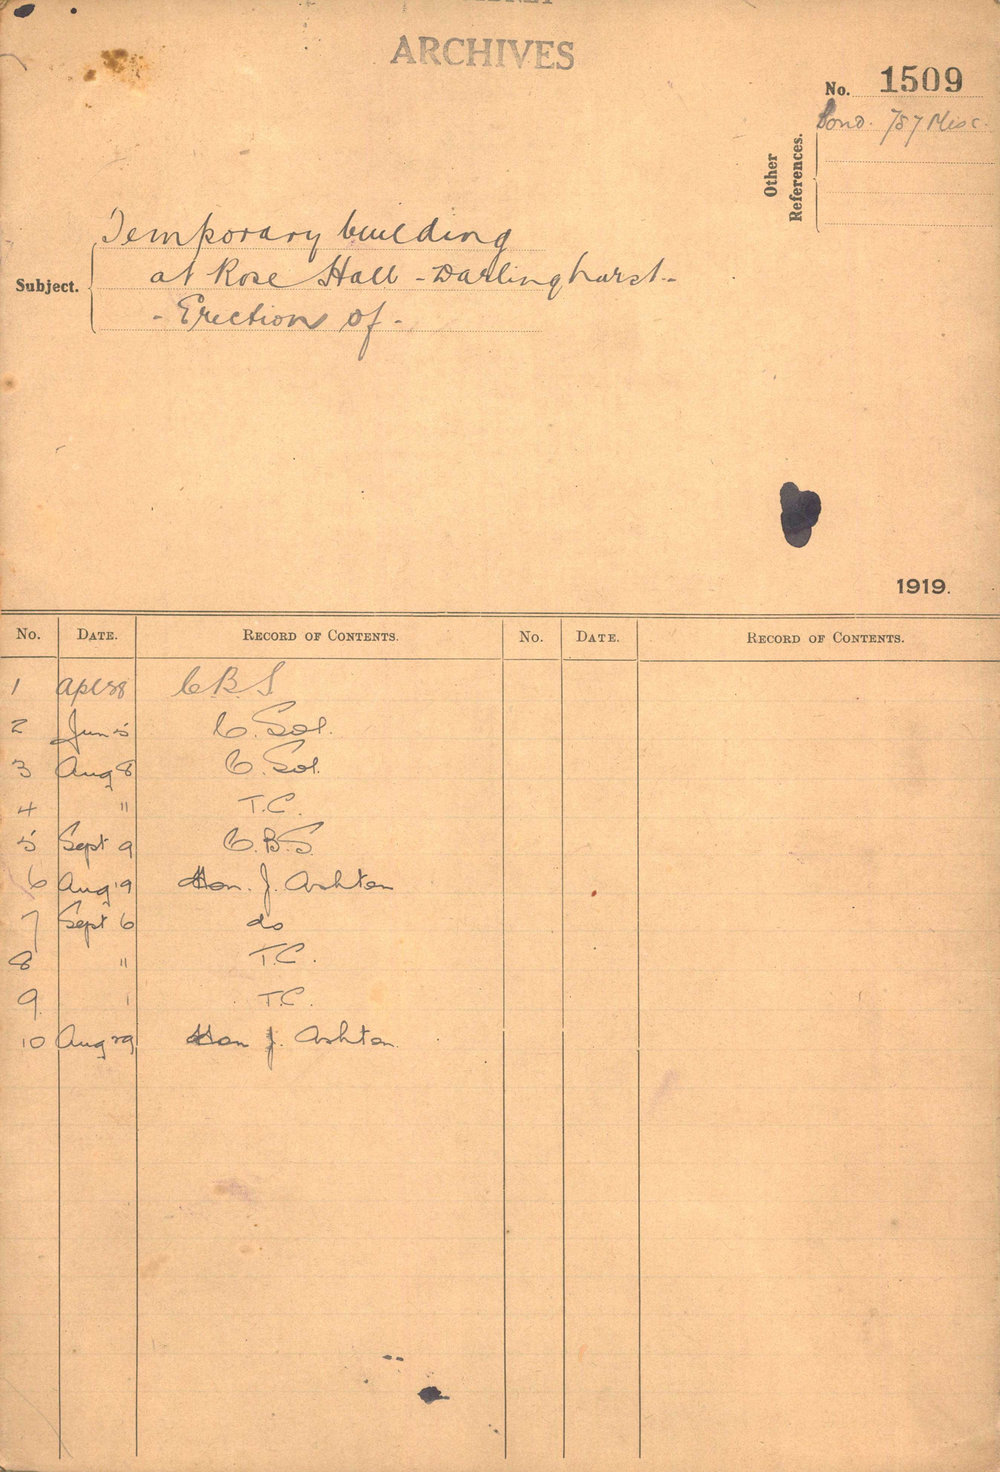 ARCHIVES
No. 1509
Other References.
Bond. 787 Misc.
Subject.
Temporary building
at Rose Hall - Darlinghurst -
- Erection of -
1919.
No. DATE. RECORD OF CONTENTS. No. DATE. RECORD OF CONTENTS.
1 C.B.S
2 Jun 5 C. Sol.
3 Aug 8 C. Sol.
4 " T.C.
5 Sept 9 C.B.S.
6 Aug 19 Hon. J. Ashton
7 Sept 6 do
8 " T.C.
9 T.C.
10 Aug 29 Hon J. Ashton.